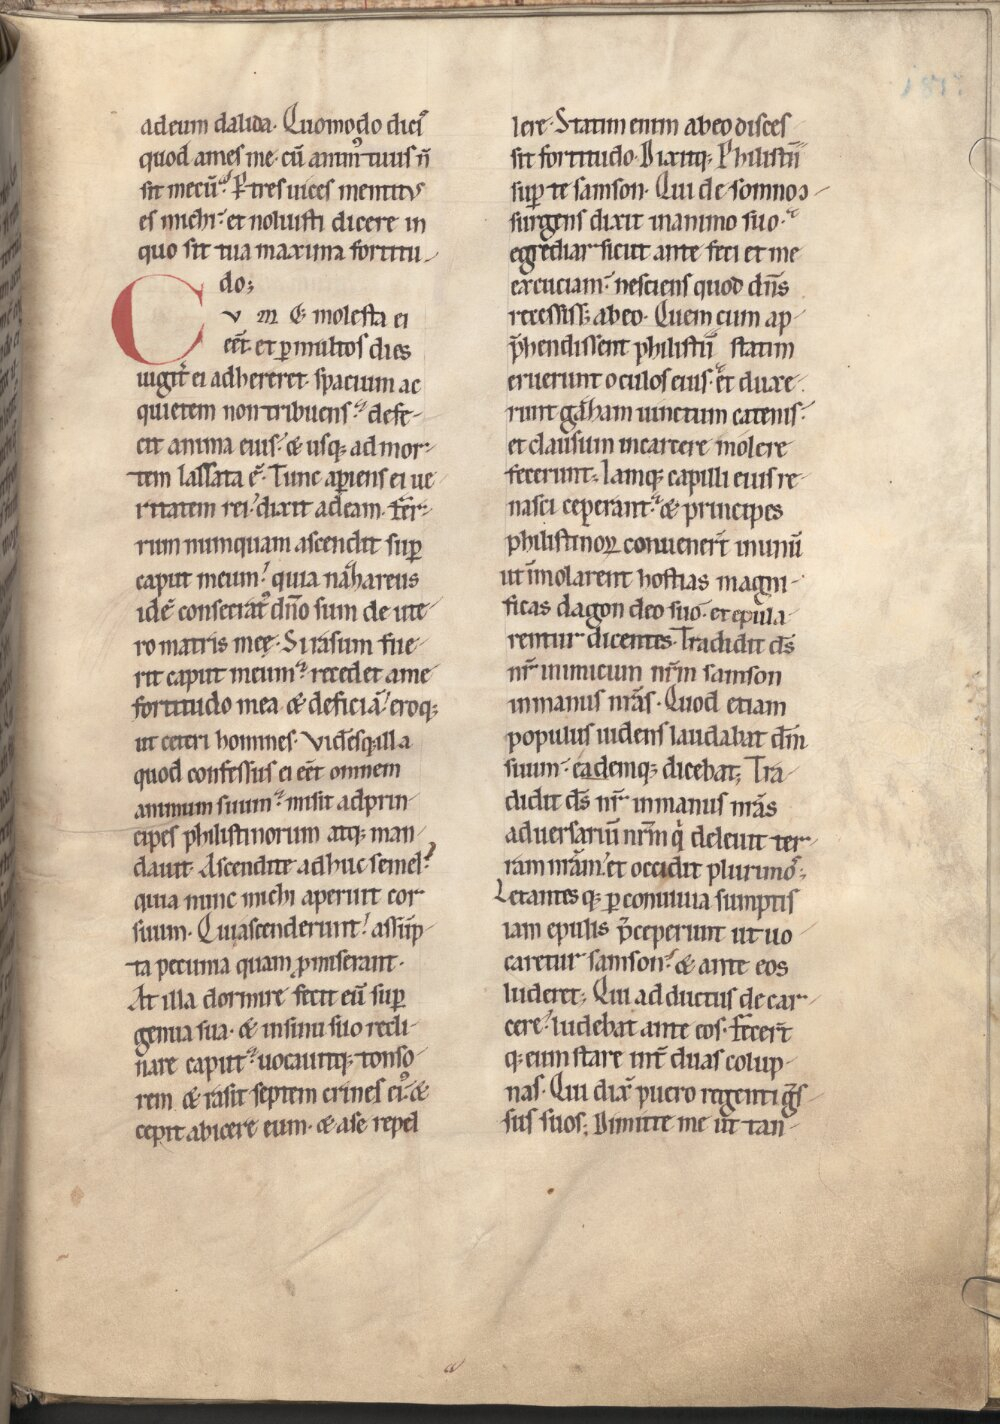 ad eum dalida. Quomodo dicis
quod ames me. cū animꝰ tuus n̄
sit mecū. Ꝑ tres uices mentitus
es michi. et noluisti dicere in
quo sit tua maxima fortitu
do;
CVM Q; molesta ei
eēt et ꝑ multos dies
iugit̄ ei adhereret. spacium ad
quietem non tribuens. defe
cit anima eius. & usq; ad mor
tem lassata ē. Tunc aꝑiens ei ue
ritatem rei. dixit ad eam. fer
rum numquam ascendit suꝑ
caput meum. quia nazareus
idē consecratꝰ dn̄o sum de ute
ro matris meę. Si rasum fue
rit caput meum. recedet a me
fortitudo mea & deficiā. eroq;
ut ceteri homines. Vidensq; illa
quod confessus ei eēt omnem
animum suum. misit ad prin
cipes philistinorum atq; man
dauit. Ascendite adhuc semel.
quia nunc michi aperuit cor
suum. Qui ascenderunt. assūp
ta pecunia quam ꝓmiserant.
At illa dormire fecit eū suꝑ
genua sua. & in sinu suo recli
nare caput. uocauitq; tonso
rem & rasit septem crines eiꝰ. &
cepit abicere eum. & a se repel
lere. Statim enim ab eo disces
sit fortitudo. Dixitq; Philistiī
suꝑ te samson. Qui de somno
surgens dixit in animo suo.
egrediar sicut ante feci et me
excuciam. nesciens quod dn̄s
recessiss; ab eo. Quem cum ap
p̄hendissent philistiī statim
eruerunt oculos eius. et duxe
runt gazam uinctum catenis.
et clausum in carcere molere
fecerunt. Iamq; capilli eius re
nasci ceperant. & principes
philistinoꝝ conuenert̄ in unū
ut īmolarent hostias magni
ficas dagon deo suo. et epula
rentur dicentes. Tradidit ds̄
nr̄ inimicum nr̄m samson
in manus nr̄as. Quod etiam
populus uidens laudabat dm̄
suum. eademq; dicebat; Tra
didit ds̄ nr̄ in manus nr̄as
aduersariū nr̄m q̇ deleuit ter
ram nr̄am. et occidit plurimos;
Letantesq; ꝑ conuiuia sumptis
iam epulis p̄ceperunt ut uo
caretur samson. & ante eos
luderet; Qui adductus de car
cere. ludebat ante eos. fecert̄
q; eum stare int̄ duas colup
nas. Qui dix̄ puero regenti gs̄
sus suos; Dimitte me ut tan